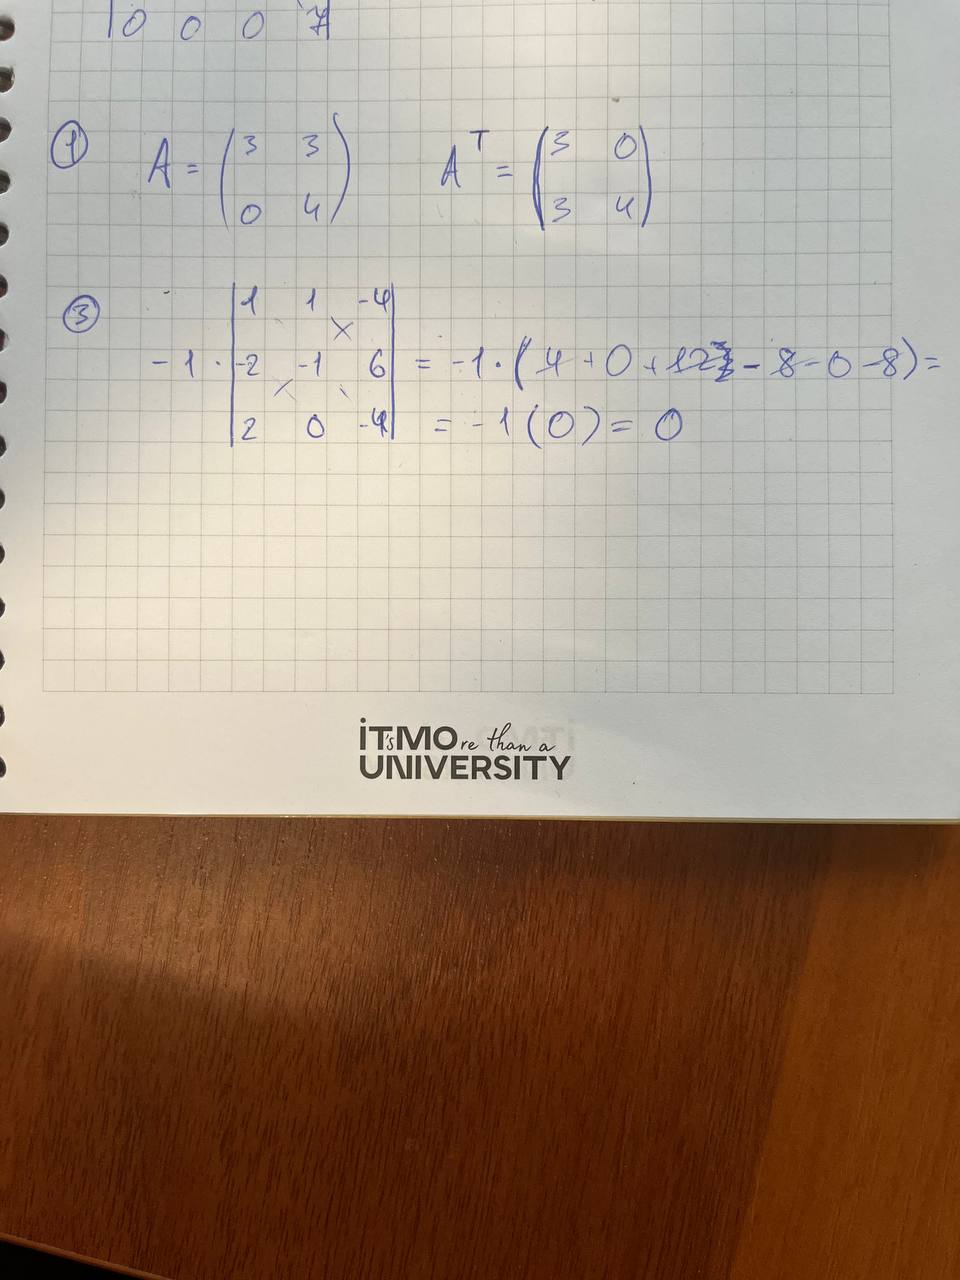 0 0 0 7
① A = (3 3
0 4) Aᵀ = (3 0
3 4)
③ -1 · |1 1 -4
-2 -1 6
2 0 -4| = -1 · (4 + 0 + 12 - 8 - 0 - 8) =
= -1 (0) = 0
iT'sMOre than a
UNIVERSITY